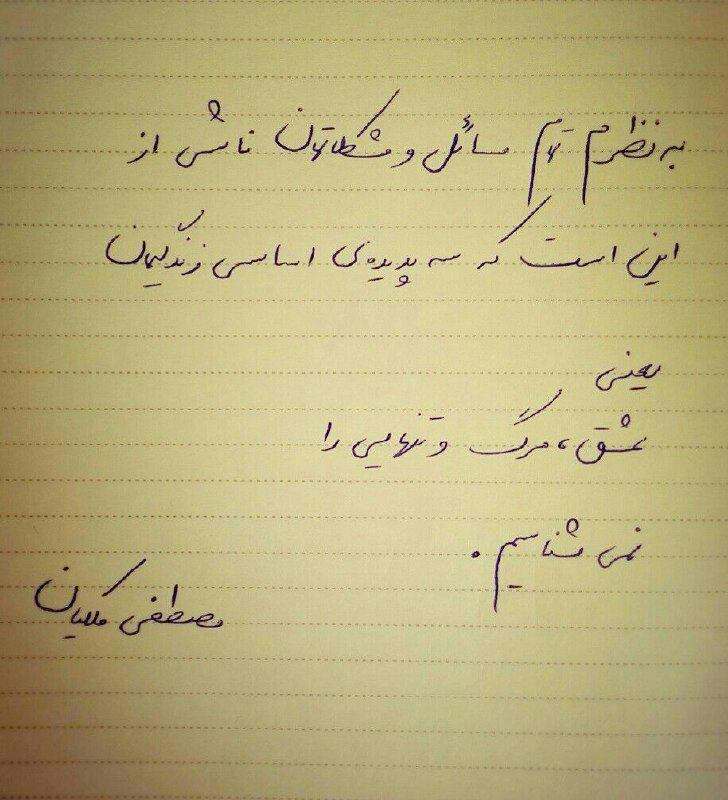 به نظرم تمام مسائل و مشکلاتمان ناشی از
این است که سه پدیده‌ی اساسی زندگیمان
یعنی
عشق، مرگ و تنهایی را
نمی شناسیم.
مصطفی ملکیان